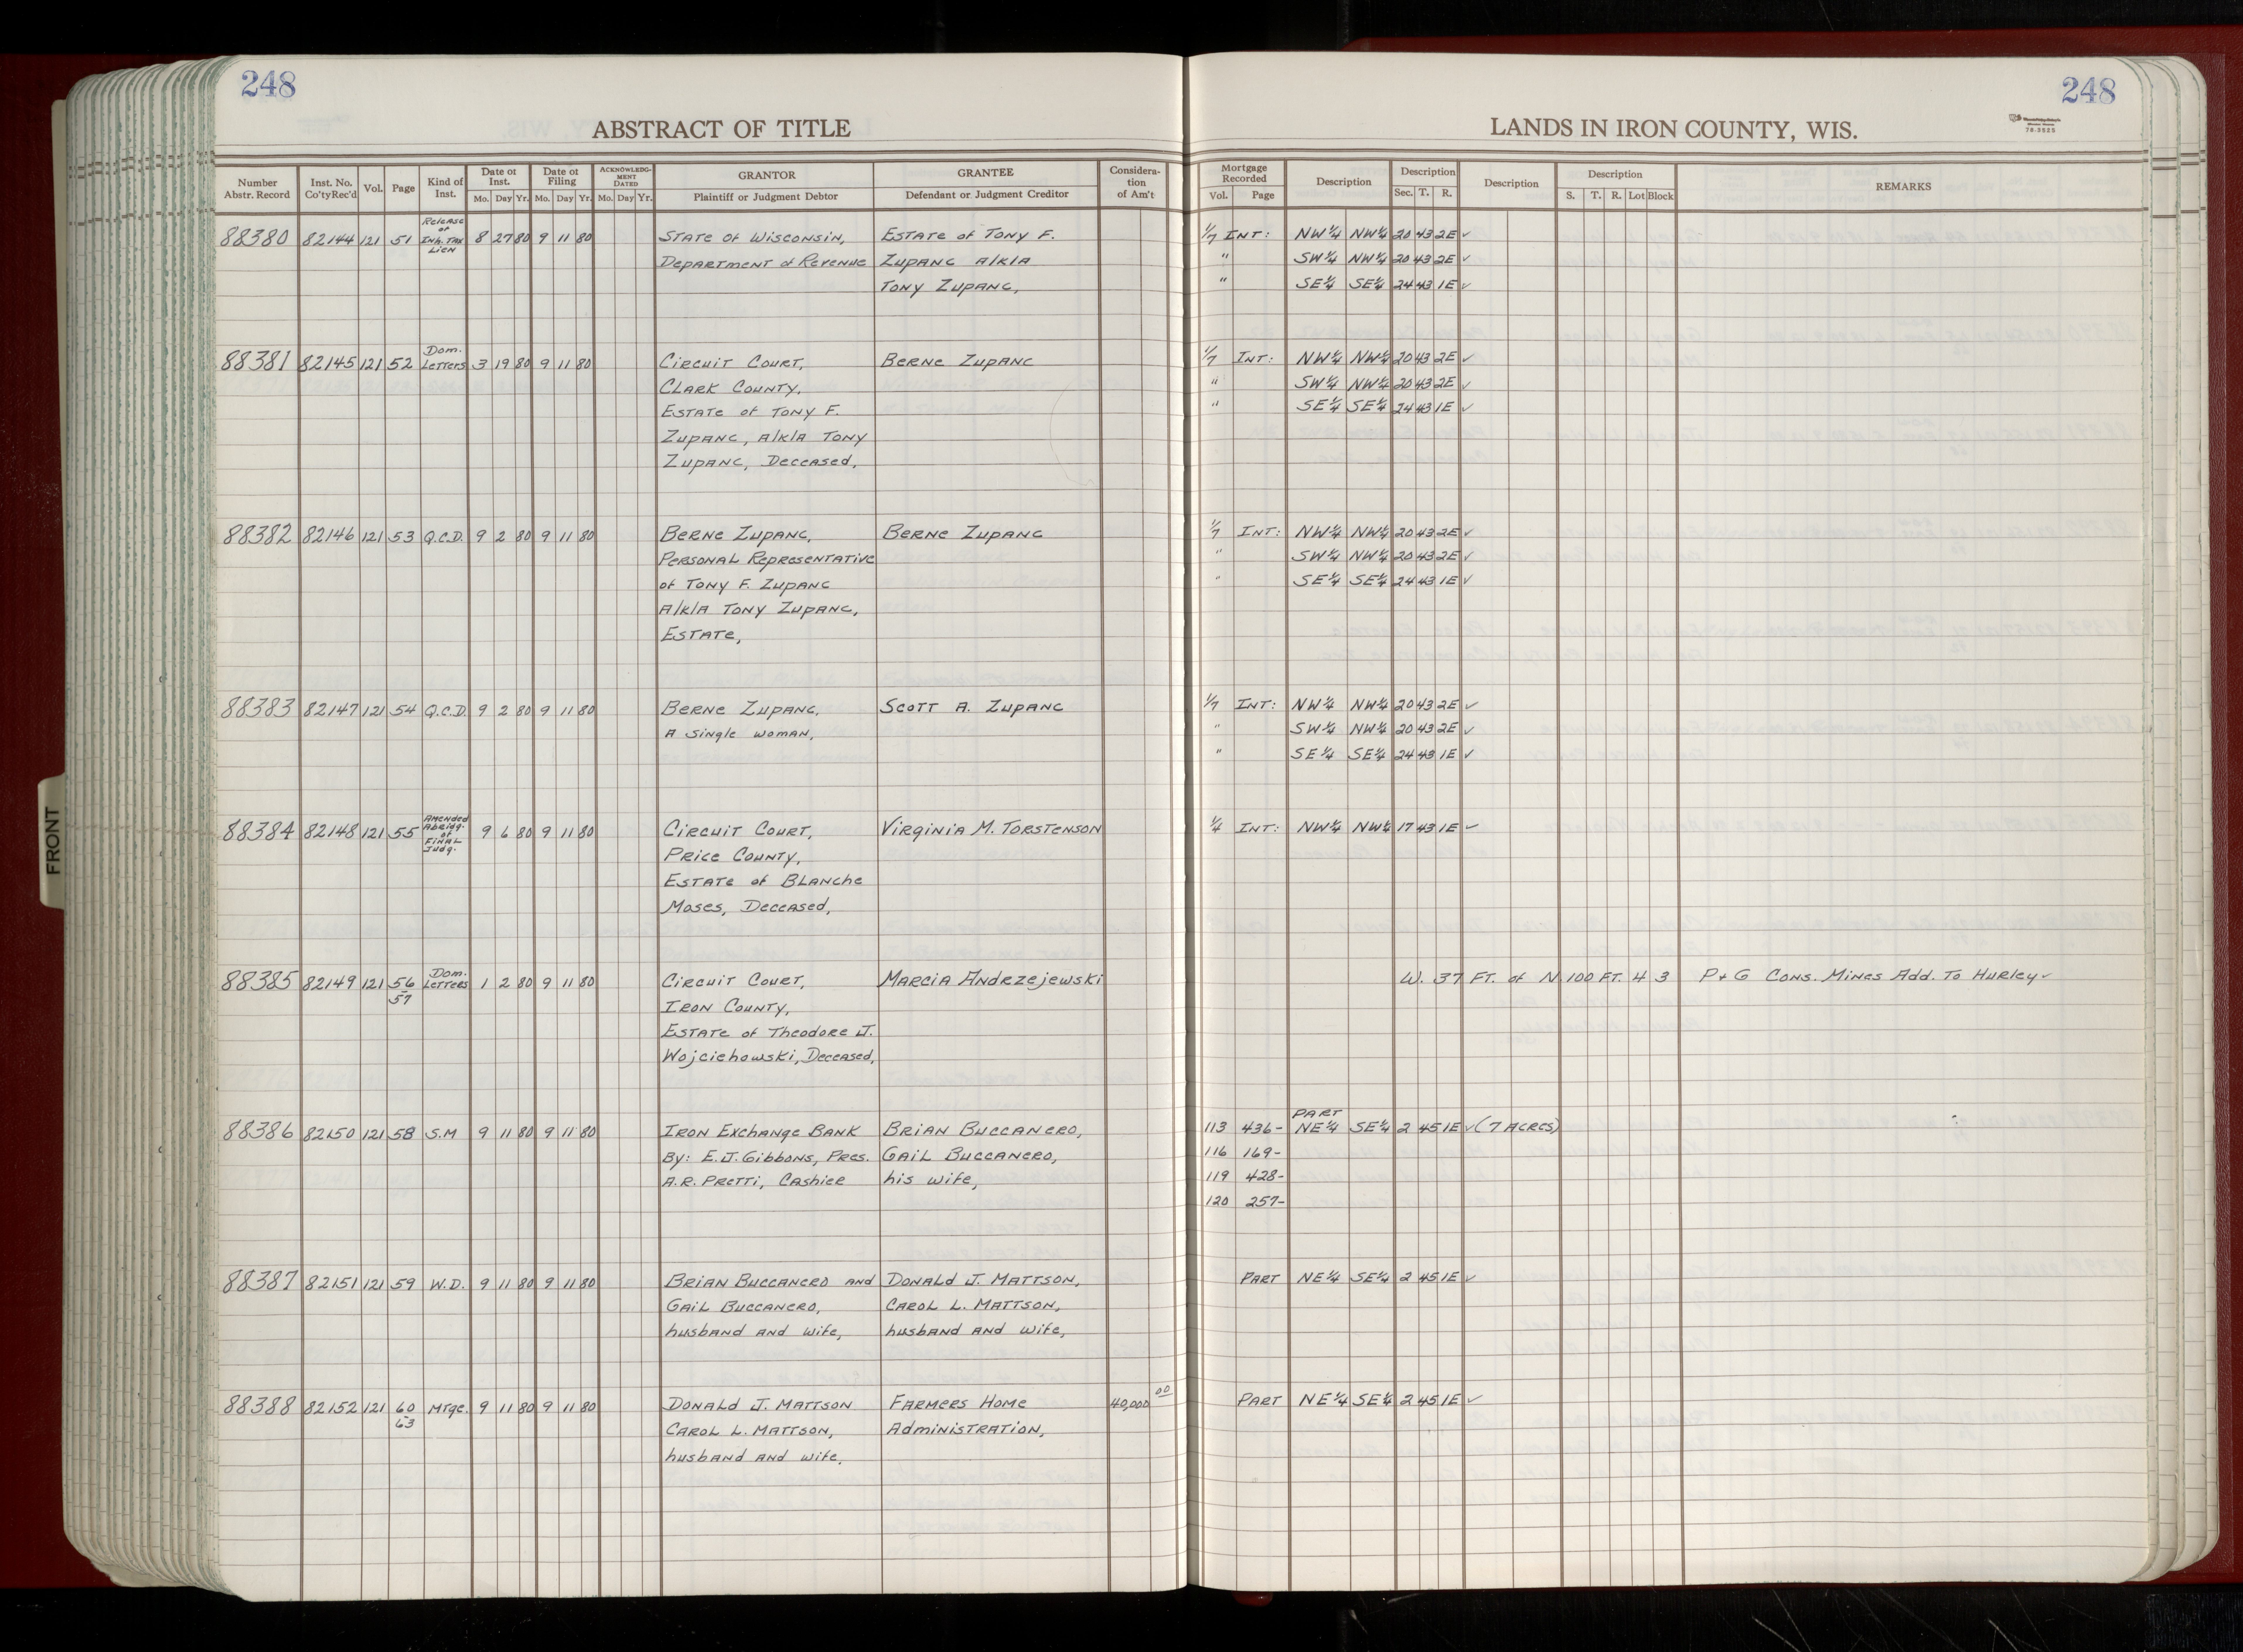 248
248
ABSTRACT OF TITLE
LANDS IN IRON COUNTY, WIS.
70-3525
Number Abstr. Record
Inst. No. Co'ty Rec'd
Vol.
Page
Kind of Inst.
Date of Inst. Mo. Day Yr.
Date of Filing Mo. Day Yr.
ACKNOWLEDGMENT DATED Mo. Day Yr.
GRANTOR Plaintiff or Judgment Debtor
GRANTEE Defendant or Judgment Creditor
Consideration of Am't
Mortgage Recorded Vol. Page
Description
Description Sec. T. R.
Description
Description S. T. R. Lot Block
REMARKS
88380 82144 121 51 Release of Inh. Tax Lien 8 27 80 9 11 80 State of Wisconsin, Estate of Tony F. 1/7 Int: NW¼ NW¼ 20 43 2E ✓
Department of Revenue Zupanc a/k/a " SW¼ NW¼ 20 43 2E ✓
Tony Zupanc, " SE¼ SE¼ 24 43 1E ✓
88381 82145 121 52 Dom. Letters 3 19 80 9 11 80 Circuit Court, Berne Zupanc 1/7 Int: NW¼ NW¼ 20 43 2E ✓
Clark County, " SW¼ NW¼ 20 43 2E ✓
Estate of Tony F. " SE¼ SE¼ 24 43 1E ✓
Zupanc, a/k/a Tony
Zupanc, Deceased,
88382 82146 121 53 Q.C.D. 9 2 80 9 11 80 Berne Zupanc, Berne Zupanc 1/7 Int: NW¼ NW¼ 20 43 2E ✓
Personal Representative " SW¼ NW¼ 20 43 2E ✓
of Tony F. Zupanc " SE¼ SE¼ 24 43 1E ✓
a/k/a Tony Zupanc,
Estate,
88383 82147 121 54 Q.C.D. 9 2 80 9 11 80 Berne Zupanc, Scott A. Zupanc 1/7 Int: NW¼ NW¼ 20 43 2E ✓
a single woman, " SW¼ NW¼ 20 43 2E ✓
" SE¼ SE¼ 24 43 1E ✓
88384 82148 121 55 Amended Abridg. of Final Judg. 9 6 80 9 11 80 Circuit Court, Virginia M. Torstenson ¼ Int: NW¼ NW¼ 17 43 1E ✓
Price County,
Estate of Blanche
Moses, Deceased,
88385 82149 121 56-57 Dom. Letters 1 2 80 9 11 80 Circuit Court, Marcia Andrzejewski W. 37 FT. of N 100 FT. 4 3 P+G Cons. Mines Add. To Hurley ✓
Iron County,
Estate of Theodore J.
Wojciehowski, Deceased,
88386 82150 121 58 S.M 9 11 80 9 11 80 Iron Exchange Bank Brian Buccanero, 113 436- Part NE¼ SE¼ 2 45 1E ✓ (7 Acres)
By: E.J. Gibbons, Pres. Gail Buccanero, 116 169-
A.R. Pretti, Cashier his wife, 119 428-
120 257-
88387 82151 121 59 W.D. 9 11 80 9 11 80 Brian Buccanero and Donald J. Mattson, Part NE¼ SE¼ 2 45 1E ✓
Gail Buccanero, Carol L. Mattson,
husband and wife, husband and wife,
88388 82152 121 60-63 Mtge. 9 11 80 9 11 80 Donald J. Mattson Farmers Home 40,000 00 Part NE¼ SE¼ 2 45 1E ✓
Carol L. Mattson, Administration,
husband and wife,
FRONT